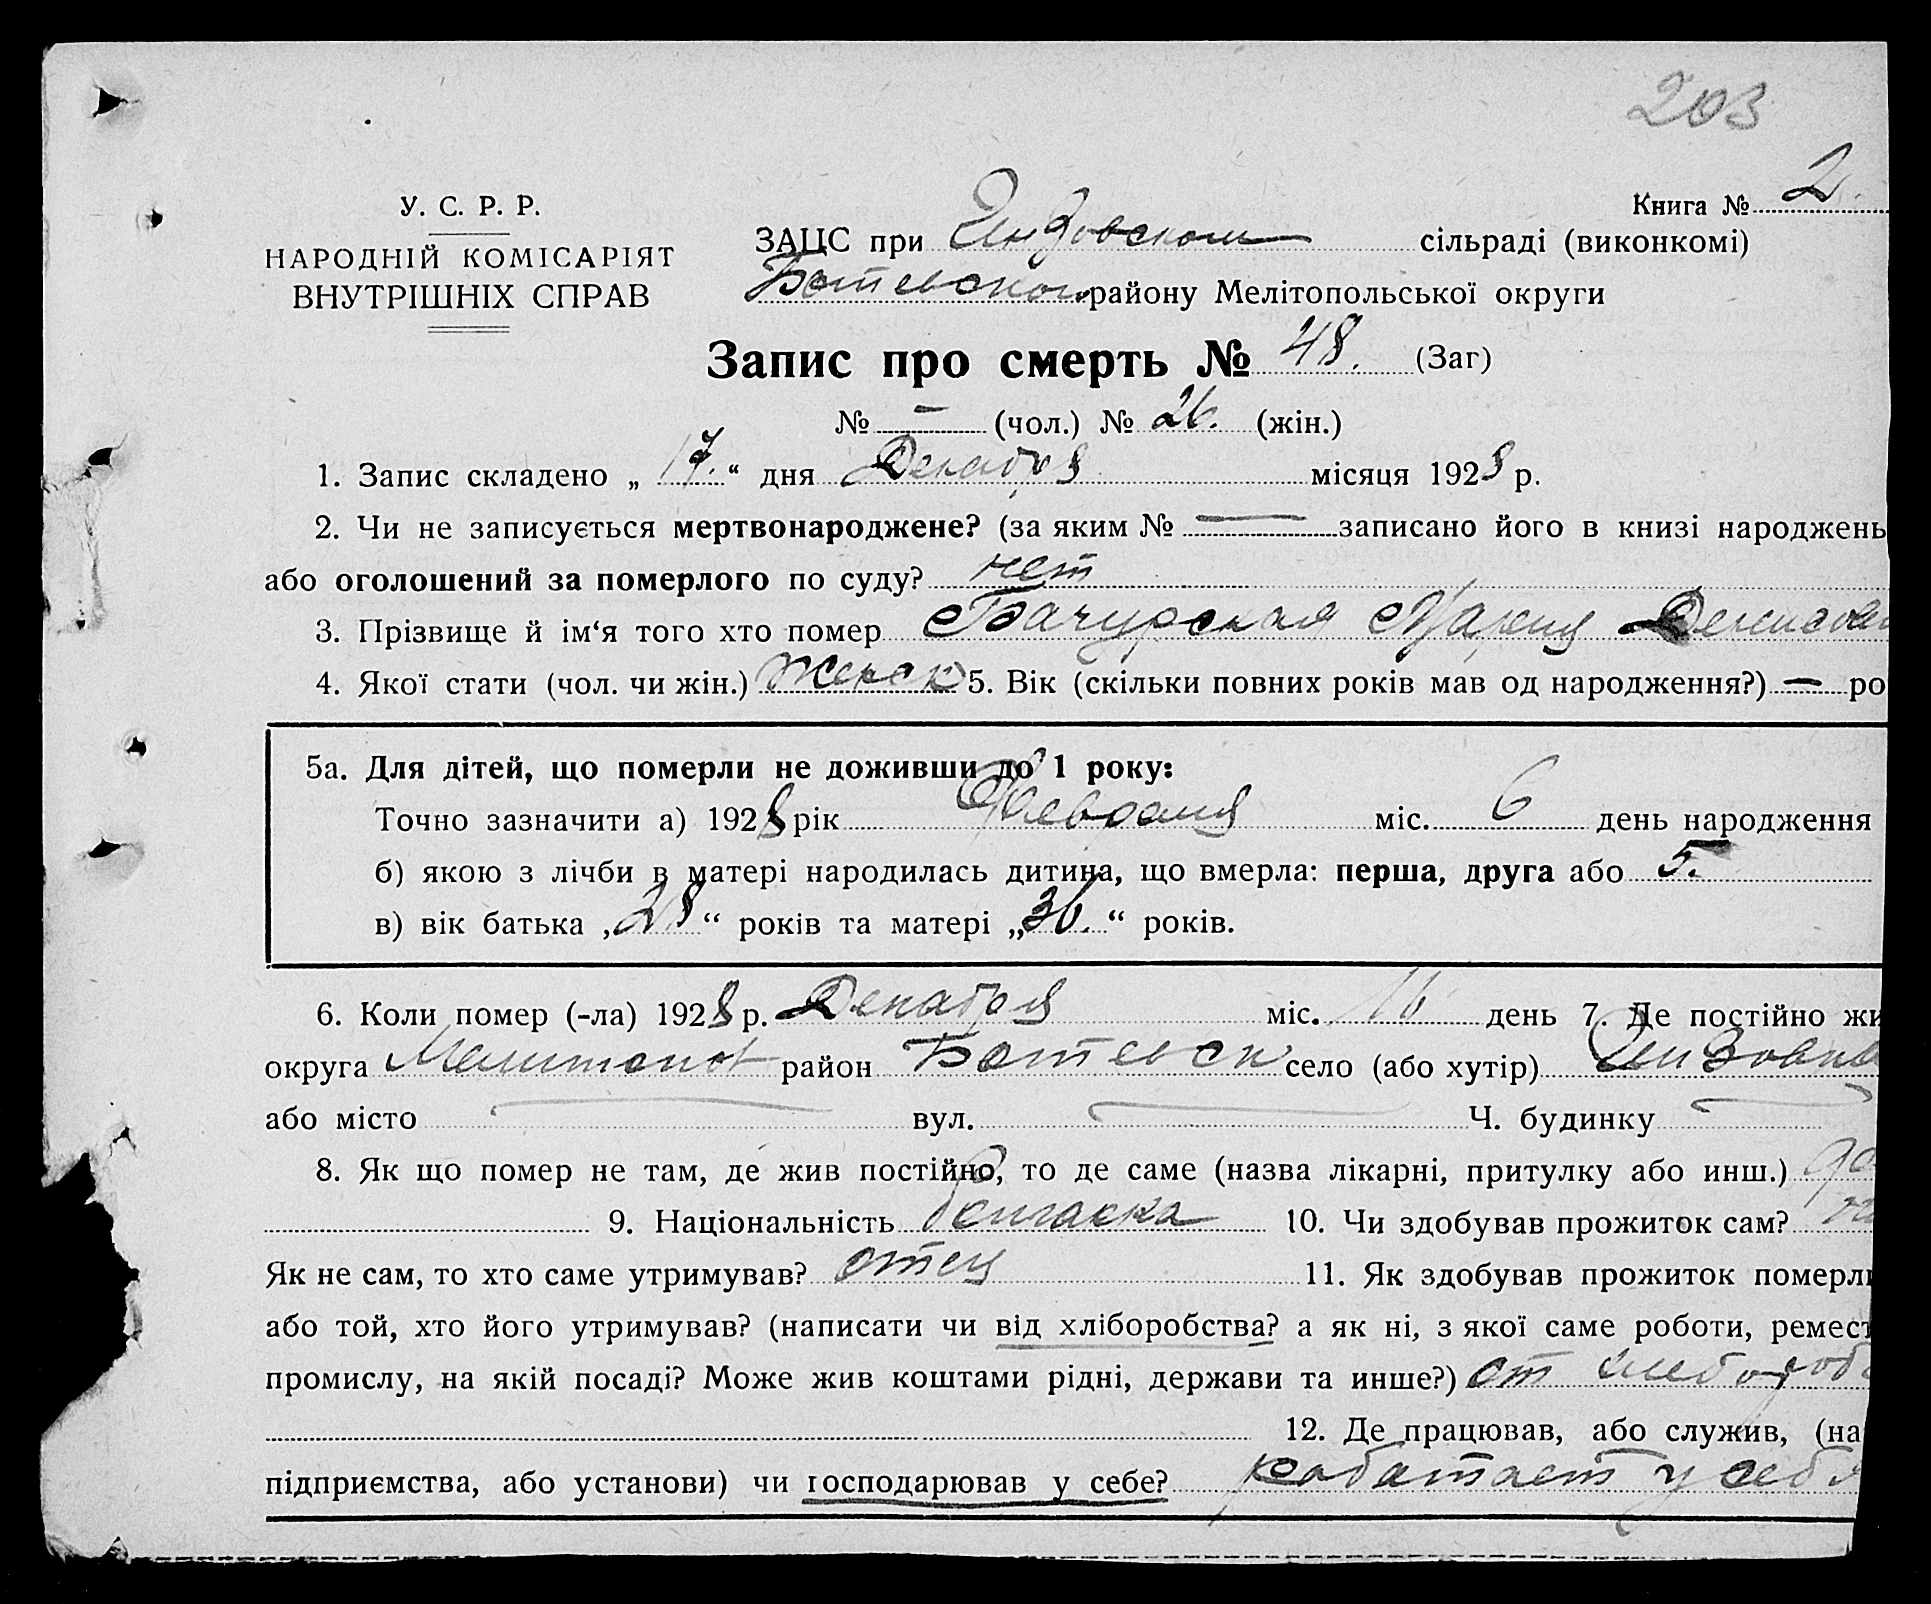 203
Книга № 2.
У. С. Р. Р.
НАРОДНІЙ КОМІСАРІЯТ
ВНУТРІШНІХ СПРАВ
ЗАЦС при сільраді (виконкомі)
Ботевском району Мелітопольської округи
Запис про смерть № 48. (Заг)
№ — (чол.) № 26. (жін.)
1. Запис складено „ 17. “ дня Декабря місяця 1928 р.
2. Чи не записується мертвонароджене? (за яким № — записано його в книзі народжень
або оголошений за померлого по суду? нет
3. Прізвище й ім‘я того хто помер Бачурская Мария Денисов
4. Якої стати (чол. чи жін.) Женск 5. Вік (скільки повних років мав од народження?) — ро
5а. Для дітей, що померли не доживши до 1 року:
Точно зазначити а) 1928 рік Февраля міс. 6 день народження
б) якою з лічби в матері народилась дитина, що вмерла: перша, друга або 5.
в) вік батька „28“ років та матері „36.“ років.
6. Коли помер (-ла) 1928 р. Декабря міс. 16 день 7. Де постійно жи
округа Мелитопол район Ботевск село (або хутір)
або місто — вул. — Ч. будинку —
8. Як що помер не там, де жив постійно, то де саме (назва лікарні, притулку або инш.)
9. Національність болгарка 10. Чи здобував прожиток сам?
Як не сам, то хто саме утримував? отец 11. Як здобував прожиток померл
або той, хто його утримував? (написати чи від хліборобства? а як ні, з якої саме роботи, ремест
промислу, на якій посаді? Може жив коштами рідні, держави та инше?) от хлебороб
12. Де працював, або служив, (на
підприємства, або установи) чи господарював у себе? работает у себя